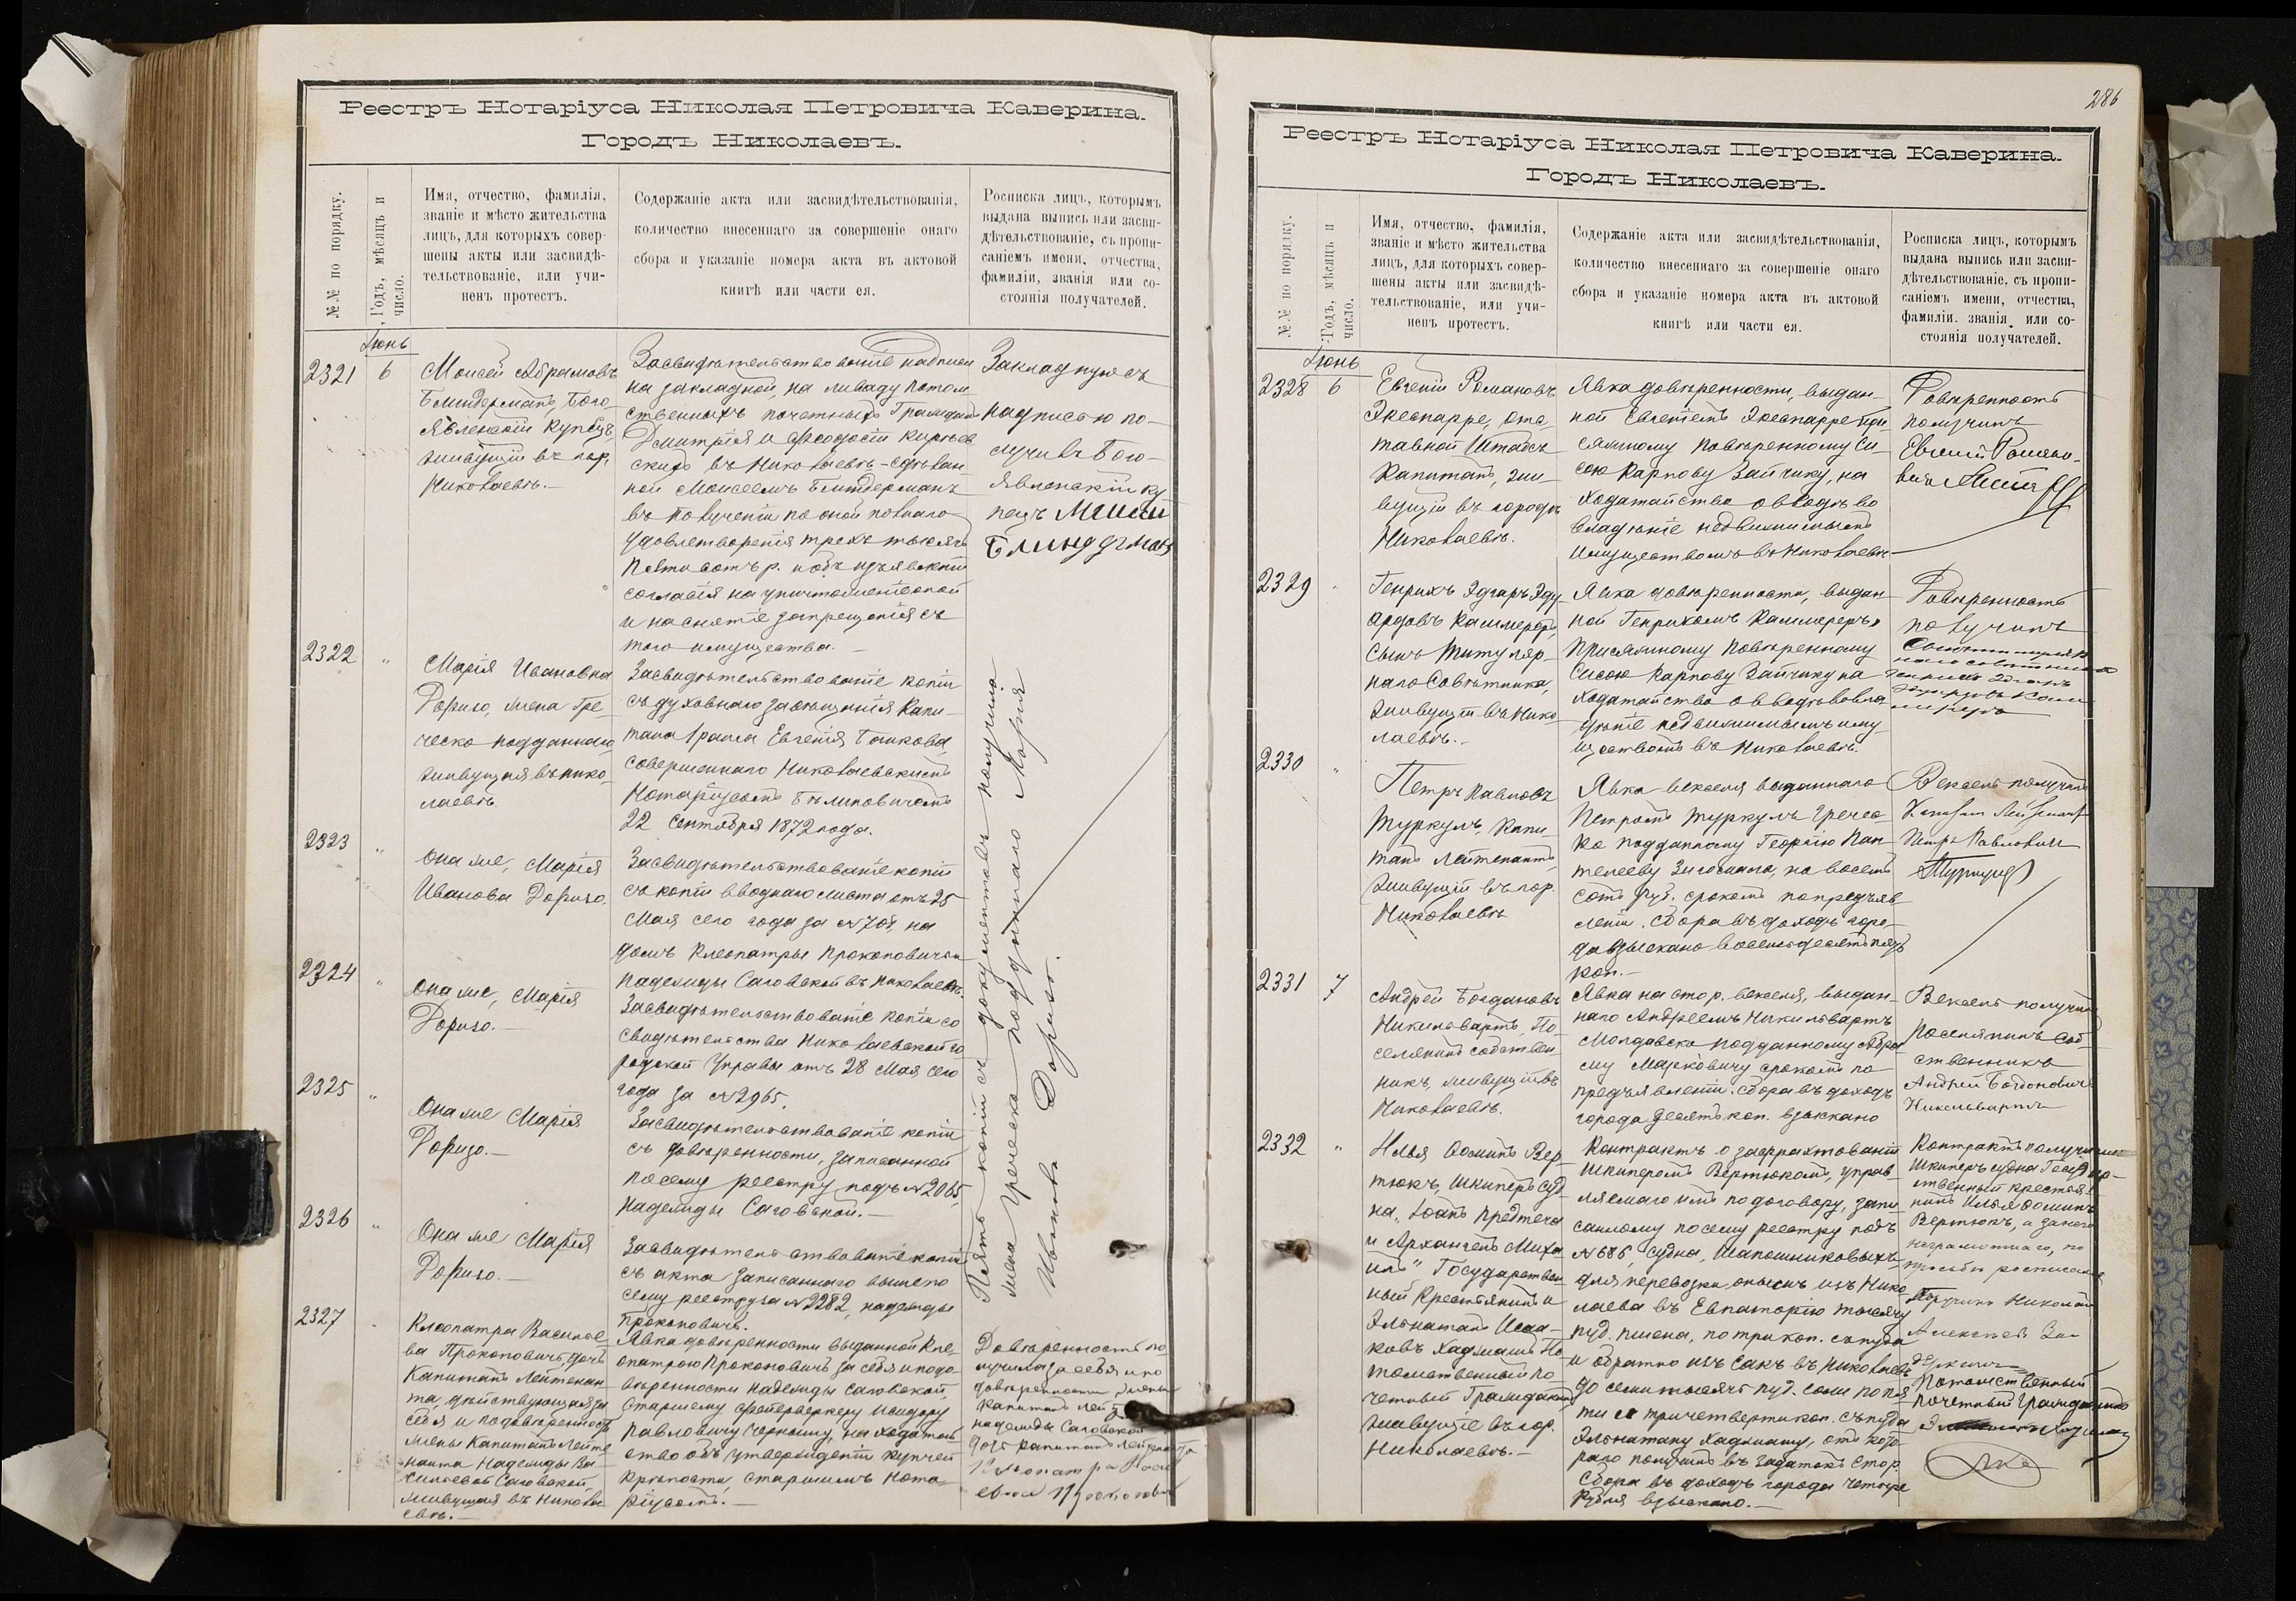 Реестръ Нотаріуса Николая Петровича Каверина.
Городъ Николаевъ.
№№ по порядку.
Годъ, мѣсяцъ и
число.
Имя, отчество, фамилія,
званіе и мѣсто жительства
лицъ, для которыхъ совер-
шены акты или засвидѣ-
тельствованіе, или учи-
ненъ протестъ.
Содержаніе акта или засвидѣтельствованія,
количество внесеннаго за совершеніе онаго
сбора и указаніе номера акта въ актовой
книгѣ или части ея.
Росписка лицъ, которымъ
выдана выпись или засви-
дѣтельствованіе, съ пропи-
саніемъ имени, отчества,
фамиліи, званія или со-
стоянія получателей.
Іюнь
2321 6
Моисей Абрамовъ
Блиндерманъ, Бого-
явленскій купецъ,
живущій въ гор.
Николаевѣ.—
Засвидѣтельствованіе надписи
на закладной, на леваду потом
ственныхъ почетныхъ Граждан
Дмитрія и Феодосіи
въ Николаевѣ - сдѣлан
ной Моисеемъ Блиндерманъ
въ полученіи по оной полнаго
удовлетворенія трехъ тысячъ
пятисотъ р. и объ изъявленіи
согласія на уничтоженіе оной
и на снятіе запрещенія съ
того имущества.—
Закладную съ
надписью по-
лучилъ Бого-
явленскій ку
пецъ Моисей
Блиндерман
2322 "
Марія Ивановна
Доризо, жена Гре-
ческо подданнаго,
живущая въ Нико-
лаевѣ.
Засвидѣтельствованіе копіи
съ духовнаго завѣщанія Капи-
тана 1 ранга Евгенія
совершеннаго Николаевскимъ
Нотаріусомъ Бѣлиновичемъ
22 Сентября 1872 года.
2323 "
Она же, Марія
Иванова Доризо.
Засвидѣтельствованіе копіи
съ копіи вводнаго листа отъ 25
Мая сего года за №708, на
домъ Клеопатры Прокоповичъ и
Надежды Саговской въ Николаевѣ.
2324 "
Она же, Марія
Доризо.—
Засвидѣтельствованіе копіи со
свидѣтельства Николаевской го
родской Управы отъ 28 Мая сего
года за №2965.
2325 "
Она же Марія
Доризо.—
Засвидѣтельствованіе копіи
съ довѣренности, записанной
по сему реестру подъ №2065,
Надежды Саговской.—
2326 "
Она же Марія
Доризо.—
Засвидѣтельствованіе копіи
съ акта записаннаго выше по
сему реестру за №2282, Надежды
Прокоповичъ.
Пять копій съ документовъ получила
жена Греческо-подданнаго Марія
Иванова Доризо.
2327
Клеопатра Василье
ва Прокоповичъ, дочь
Капитанъ Лейтенан
та, дѣйствующая за
себя и по довѣренности
жены Капитанъ Лейте
нанта Надежды Ва
сильевой Саговской,
живущая въ Никола
евѣ.—
Явка довѣренности выданной Кле-
опатрою Прокоповичъ за себя и по до-
вѣренности Надежды Саговской,
Старшему фейерверкеру Исидору
Павловичу Черному, на ходатай
ство объ утвержденіи купчей
крѣпости, старшимъ Нота-
ріусомъ.—
Довѣренность по
лучила за себя и по
довѣренности жены
Капитанъ Лейт
Надежды Саговской
дочь Капитанъ Лейтенанта
Клеопатра Васи
286
Реестръ Нотаріуса Николая Петровича Каверина.
Городъ Николаевъ.
№№ по порядку.
Годъ, мѣсяцъ и
число.
Имя, отчество, фамилія,
званіе и мѣсто жительства
лицъ, для которыхъ совер-
шены акты или засвидѣ-
тельствованіе, или учи-
ненъ протестъ.
Содержаніе акта или засвидѣтельствованія,
количество внесеннаго за совершеніе онаго
сбора и указаніе номера акта въ актовой
книгѣ или части ея.
Росписка лицъ, которымъ
выдана выпись или засви-
дѣтельствованіе, съ пропи-
саніемъ имени, отчества,
фамиліи, званія или со-
стоянія получателей.
Іюнь
2328 6
Евгеній Романовъ
Деспарре, Отс
тавной Штабсъ
Капитанъ, жи-
вущій въ городѣ
Николаевѣ.
Явка довѣренности, выдан-
ной Евгеніемъ Деспарре При
сяжному повѣренному Сы-
сою Карпову Зайчику, на
ходатайство о вводѣ во
владѣніе недвижимымъ
имуществомъ въ Николаевѣ
Довѣренность
получилъ
Евгеній Романо-
вичъ
2329 "
Генрихъ Эдгаръ Эду
ардовъ Каммереръ,
сынъ Титуляр-
наго Совѣтника,
живущій въ Нико
лаевѣ.—
Явка довѣренности, выдан-
ной Генрихомъ Каммереръ
Присяжному Повѣренному
Сысою Карпову Зайчику на
ходатайство о вводѣ во вла
дѣніе недвижимымъ иму
ществомъ въ Николаевѣ.
Довѣренность
получилъ
Сынъ титуляр
наго совѣтника
Генрихъ Эдгаръ
Эдуардовъ Кам
мереръ
2330 "
Петръ Павловъ
Туркулъ, Капи
танъ Лейтенантъ,
живущій въ гор.
Николаевѣ
Явка векселя выданнаго
Петромъ Туркулъ Гречес
ко подданному Георгію Пан
телееву на восемь
сотъ руб. срокомъ по предъяв
леніи. Сбора въ доходъ горо-
да взыскано восемьдесятъ пять
коп.—
Вексель получилъ
Капитанъ Лейтенант
Петръ Павловичъ
Туркулъ
2331 7
Андрей Богдановъ
Никильвартъ, По
селянинъ собствен
никъ, живущій въ
Николаевѣ.
Явка на сто р. векселя, выдан-
наго Андреемъ Никильвартъ
Молдавско подданному Абра
му Марковичу срокомъ по
предъявленіи. Сбора въ доходъ
города десять коп. взыскано
Вексель получилъ
Поселянинъ соб-
ственникъ
Андрей Богдоновичъ
Никельвартъ
2332 "
Илья Фоминъ Вер
тюкъ, Шкиперъ суд
на, „Іоанъ Предтеча
и Архангелъ Миха
илъ" Государствен
ный Крестьянинъ и
Эльнатанъ Исаа-
ковъ Хаджашъ По
томственный по-
четный Гражданинъ
живущіе въ гор.
Николаевѣ.—
Контрактъ о зафрахтованіи
Шкиперомъ Вертюкомъ, управ
ляемаго имъ по договору, запи
санному по сему реестру подъ
№686, судна, Шапошниковыхъ,
для перевозки онымъ изъ Нико
лаева въ Евпаторію тысячу
пуд. пшена, по три коп. съ пуда
и обратно изъ Сакъ въ Николаевъ
до семи тысячъ пуд. соли по пя
ти съ тричетверти коп. съ пуда
Эльнатану Хаджашу, отъ кото
раго получилъ въ задатокъ сто р.
Сбора въ доходъ города четыре
рубля взыскано.—
Контрактъ получили
Шкиперъ судна Госуд ар-
ственный крестья
нинъ Илья Фоминъ
Вертюкъ, а за него
неграмотнаго, по
просьбѣ росписался
Поручикъ Николай
Алексѣевъ
Потомственный
почетный Гражданинъ